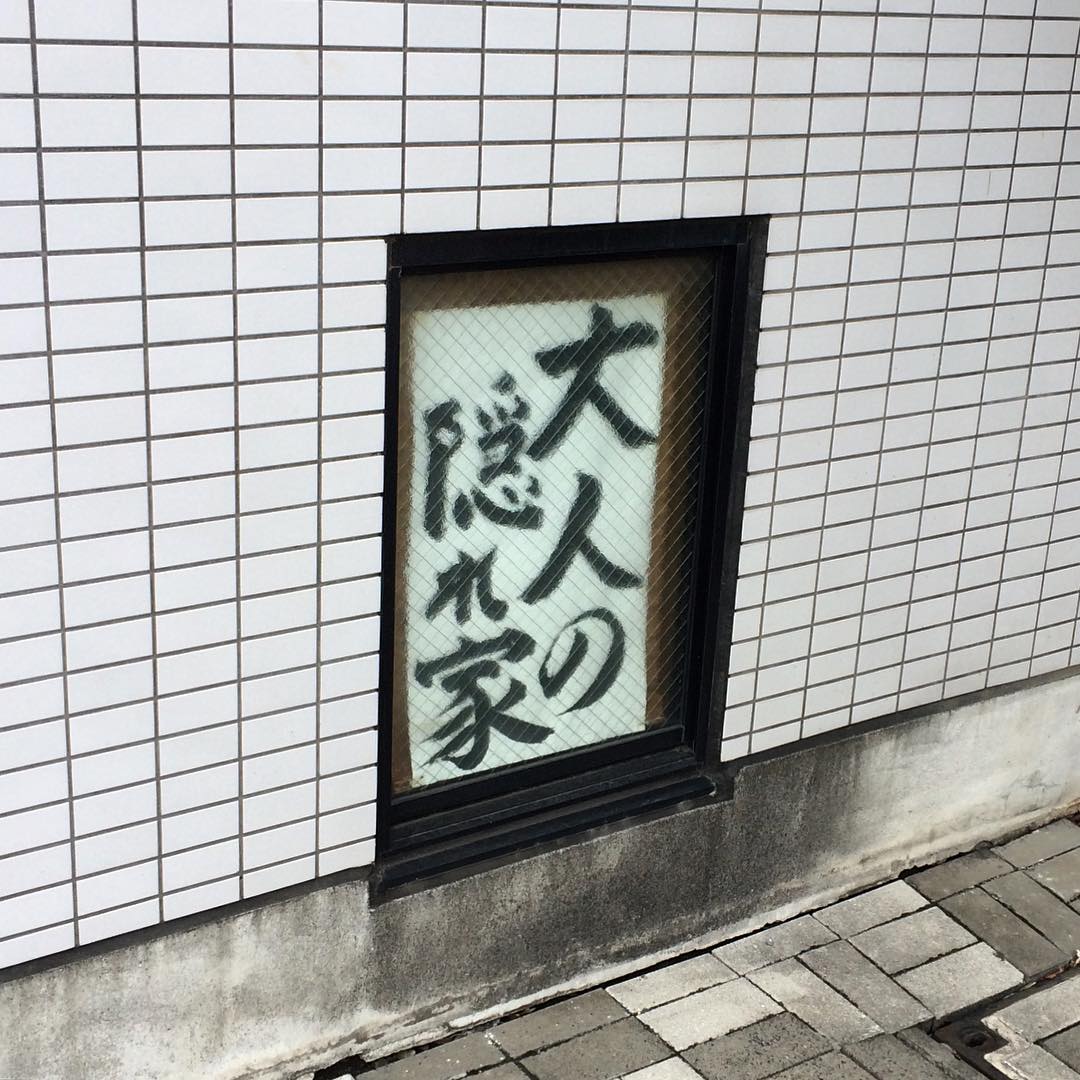 大人の
隠れ家